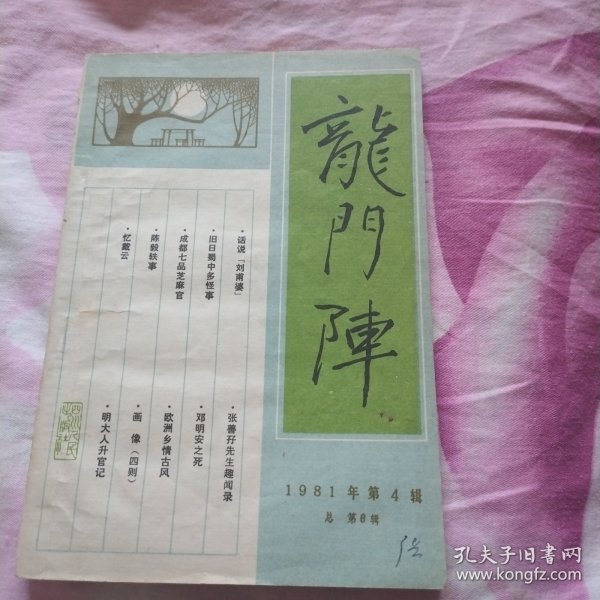 龍門陣
·话说「刘甫婆」
·旧日蜀中多怪事
·成都七品芝麻官
·陈毅轶事
·忆戴云
·张善孖先生趣闻录
·邓明安之死
·欧洲乡情古风
·画像(四则)
·明大人升官记
四川人民出版社
1981年第4辑
总 第6辑
孔夫子旧书网
www.kongfz.com